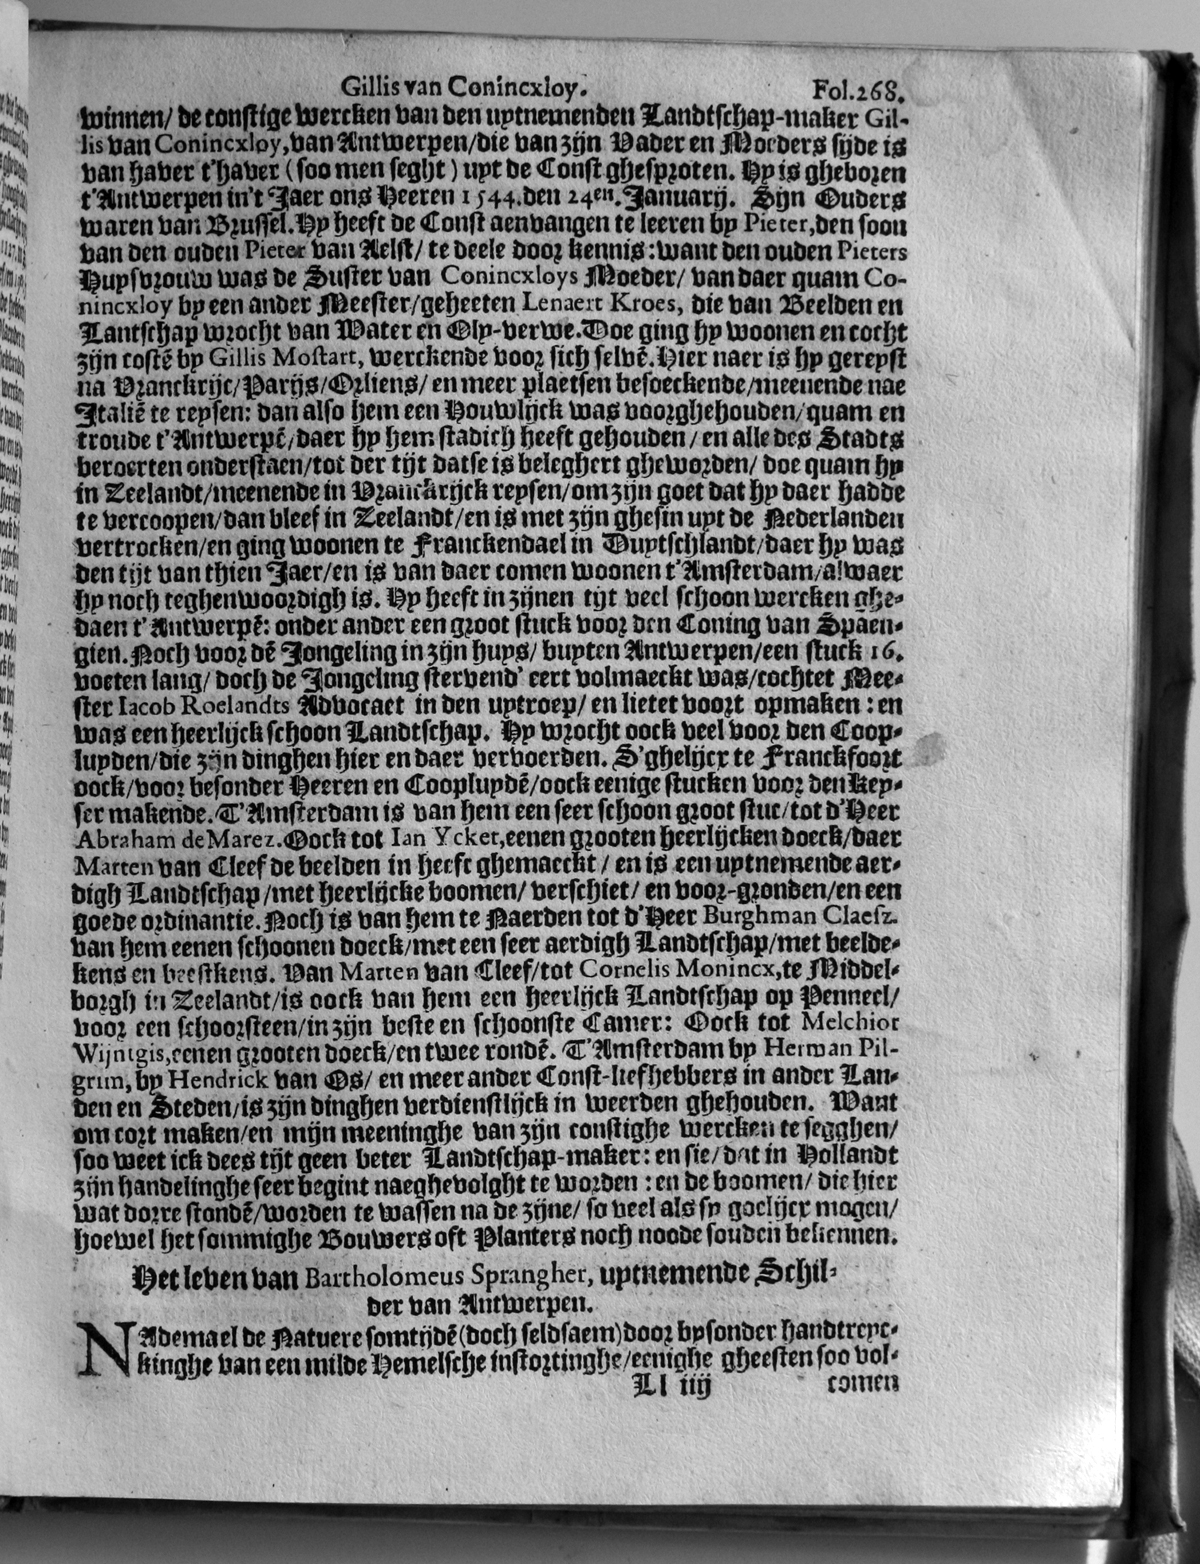 Gillis van Conincxloy. Fol.268.
winnen/ de constige wercken van den uytnemenden Landtschap-maker Gil-
lis van Conincxloy,van Antwerpen/die van zijn Vader en Moeders sijde is
van haver t'haver (soo men seght) uyt de Const ghesproten. Hy is gheboren
t'Antwerpen in't Jaer ons Heeren 1544.den 24en. Januarij. Sijn Ouders
waren van Brussel.Hy heeft de Const aenvangen te leeren by Pieter,den soon
van den ouden Pieter van Aelst/ te deele door kennis:want den ouden Pieters
Huysvrouw was de Suster van Conincxloys Moeder/ van daer quam Co-
nincxloy by een ander Meester/geheeten Lenaert Kroes, die van Beelden en
Lantschap wrocht van Water en Oly-verwe.Doe ging hy woonen en cocht
zijn costē by Gillis Mostart, werckende voor sich selvē.Hier naer is hy gereyst
na Vranckrijc/Parijs/Orliens/ en meer plaetsen besoeckende/meenende nae
Italiē te reysen: dan also hem een Houwlijck was voorghehouden/quam en
troude t'Antwerpē/daer hy hem stadich heeft gehouden/ en alle des Stadts
beroerten onderstaen/tot der tijt datse is beleghert gheworden/ doe quam hy
in Zeelandt/meenende in Vranckrijck reysen/om zijn goet dat hy daer hadde
te vercoopen/dan bleef in Zeelandt/en is met zijn ghesin uyt de Nederlanden
vertrocken/en ging woonen te Franckendael in Duytschlandt/daer hy was
den tijt van thien Jaer/en is van daer comen woonen t'Amsterdam/alwaer
hy noch teghenwoordigh is. Hy heeft in zijnen tijt veel schoon wercken ghe-
daen t'Antwerpē: onder ander een groot stuck voor den Coning van Spaen-
gien.Noch voor dē Jongeling in zijn huys/ buyten Antwerpen/een stuck 16.
voeten lang/ doch de Jongeling stervend' eert volmaeckt was/cochtet Mee-
ster Iacob Roelandts Advocaet in den uytroep/ en lietet voort opmaken : en
was een heerlijck schoon Landtschap. Hy wrocht oock veel voor den Coop-
luyden/die zijn dinghen hier en daer vervoerden. S'ghelijcx te Franckfoort
oock/voor besonder Heeren en Coopluydē/oock eenige stucken voor den Key-
ser makende.T'Amsterdam is van hem een seer schoon groot stuc/tot d'Heer
Abraham de Marez.Oock tot Ian Ycket,eenen grooten heerlijcken doeck/daer
Marten van Cleef de beelden in heeft ghemaeckt/ en is een uytnemende aer-
digh Landtschap/met heerlijcke boomen/ verschiet/ en voor-gronden/en een
goede ordinantie.Noch is van hem te Naerden tot d'Heer Burghman Claesz.
van hem eenen schoonen doeck/met een seer aerdigh Landtschap/met beelde-
kens en beestkens. Van Marten van Cleef/tot Cornelis Monincx,te Middel-
borgh in Zeelandt/is oock van hem een heerlijck Landtschap op Penneel/
voor een schoorsteen/in zijn beste en schoonste Camer: Oock tot Melchior
Wijntgis,eenen grooten doeck/en twee rondē. T'Amsterdam by Herman Pil-
grim, by Hendrick van Os/ en meer ander Const-liefhebbers in ander Lan-
den en Steden/is zijn dinghen verdienstlijck in weerden ghehouden. Want
om cort maken/en mijn meeninghe van zijn constighe wercken te segghen/
soo weet ick dees tijt geen beter Landtschap-maker: en sie/dat in Hollandt
zijn handelinghe seer begint naeghevolght te worden : en de boomen/ die hier
wat dorre stondē/worden te wassen na de zijne/ so veel als sy goelijcx mogen/
hoewel het sommighe Bouwers oft Planters noch noode souden bekennen.
Het leven van Bartholomeus Sprangher, uytnemende Schil-
der van Antwerpen.
NAdemael de Natuere somtijdē(doch seldsaem)door bysonder handtreyc-
kinghe van een milde Hemelsche instortinghe/eenighe gheesten soo vol-
Ll iiij comen